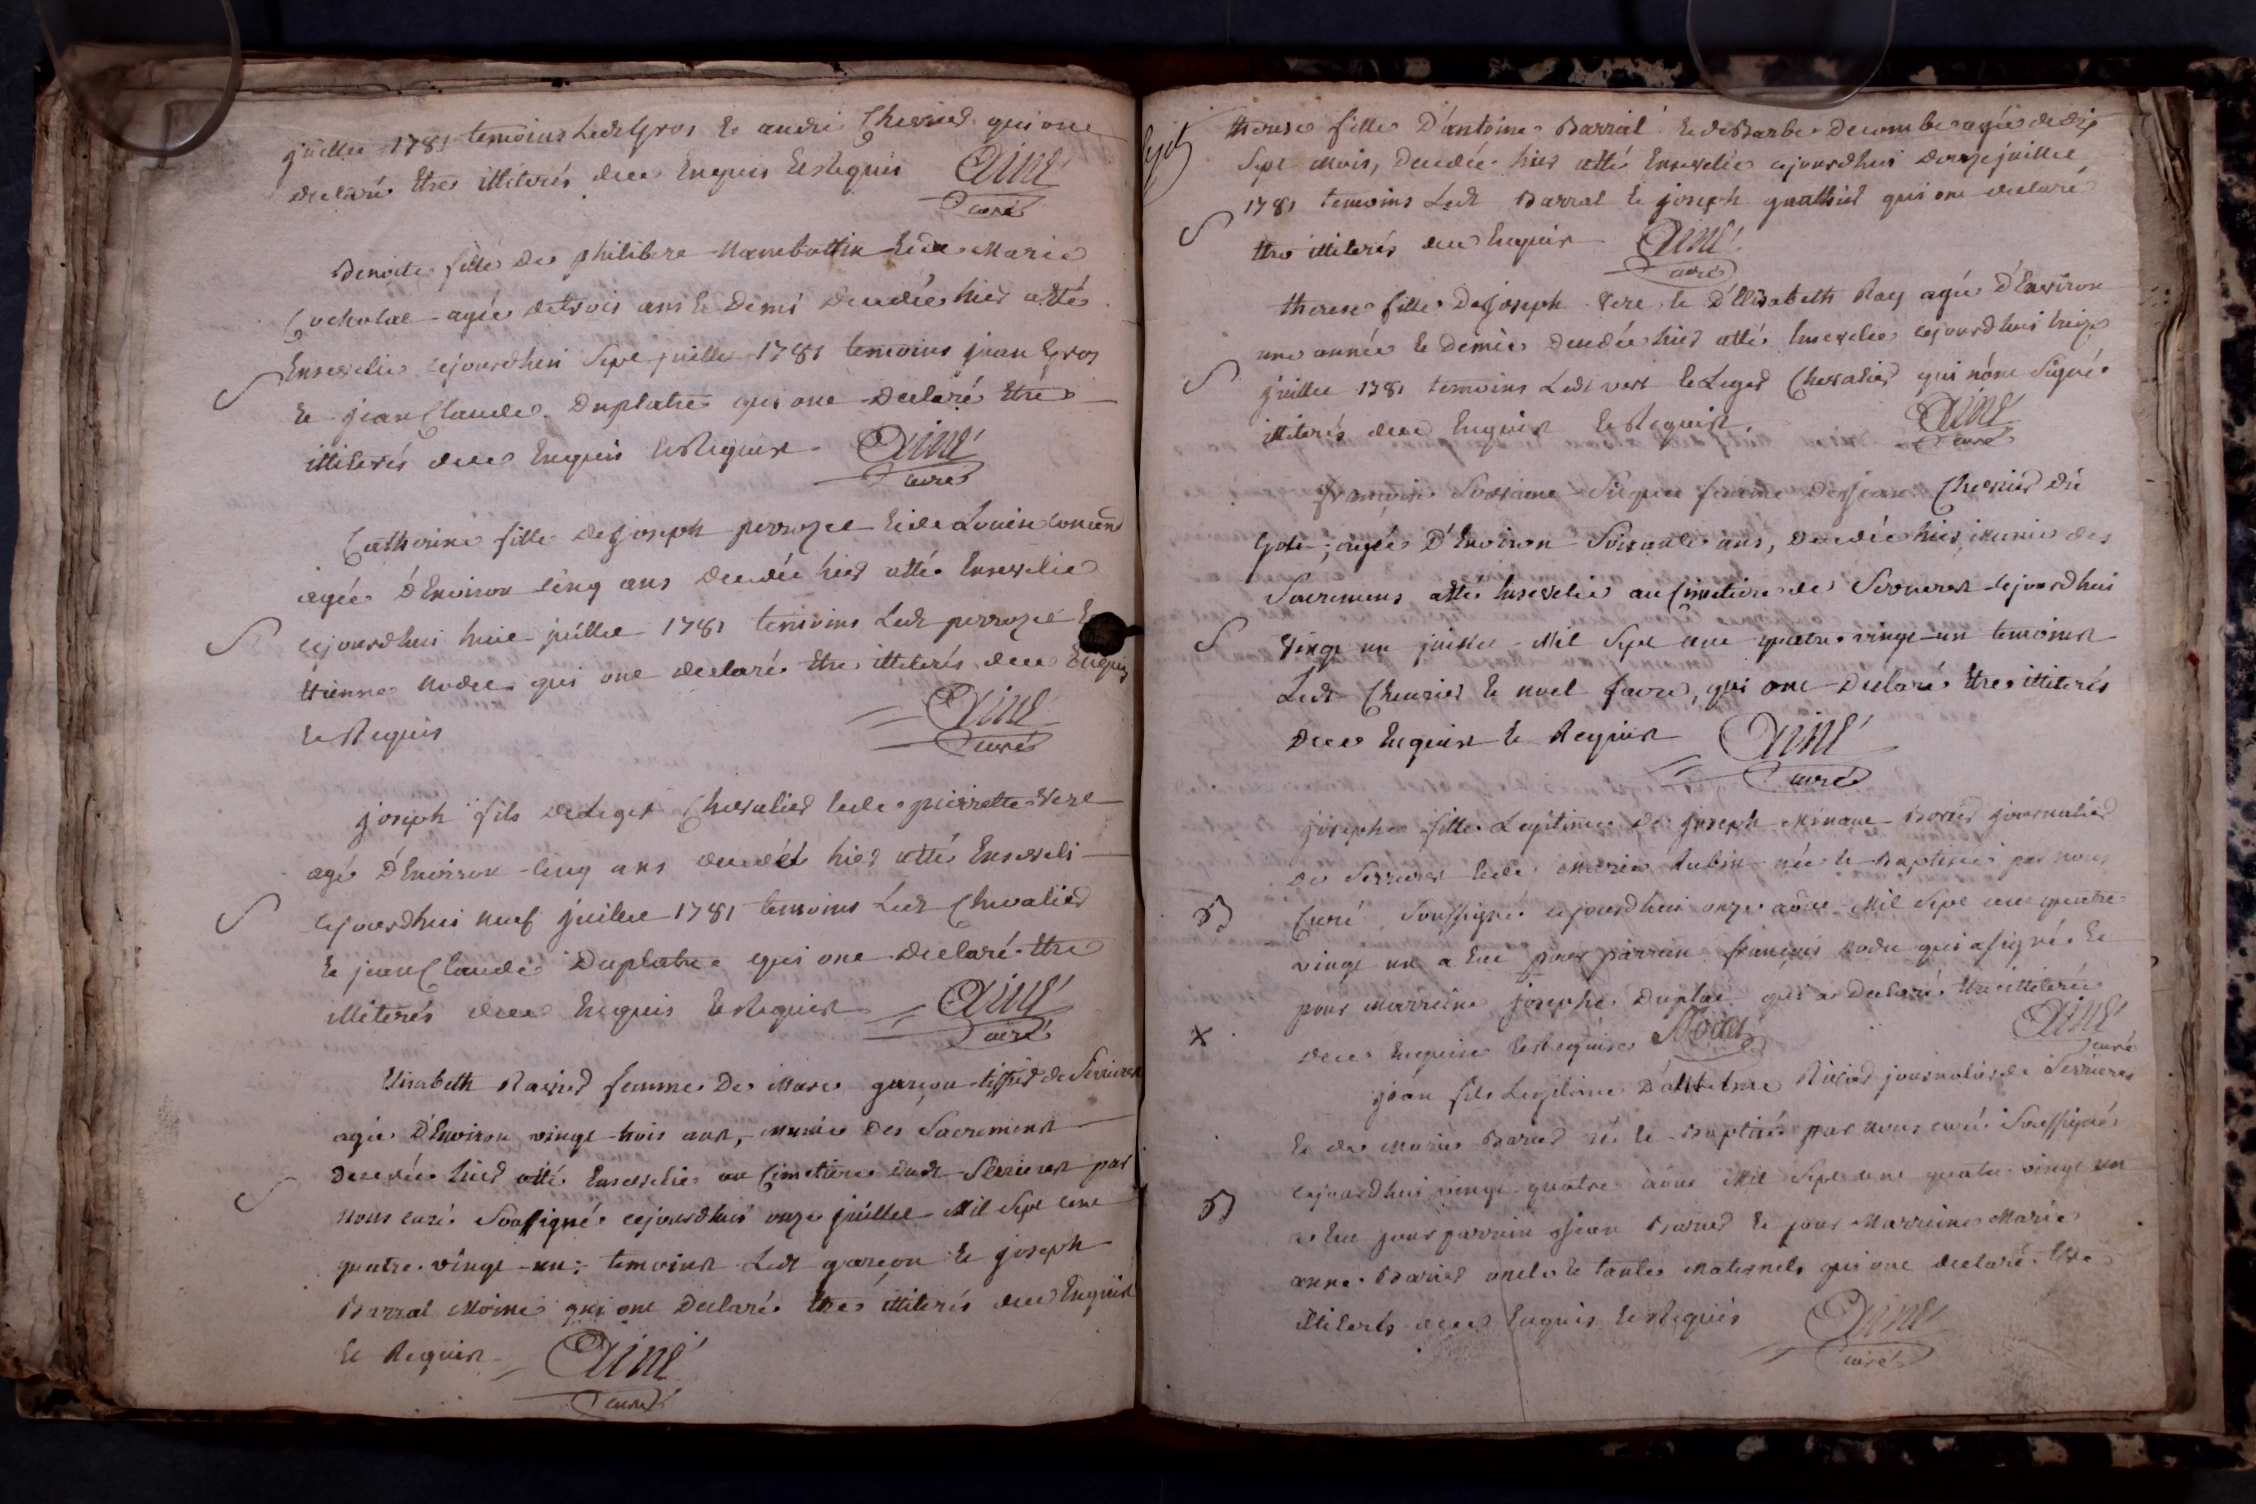 juillet 1781 temoins Ledt Gros et andré Chevrier qui ont
declaré être illiterés dece Enquis et Requis Ainé
curé
Benoite fille de philibert et de Marie
agée detrois ans et Demi decedée hier atté
Ensevelie cejourdhui Sept juillet 1781 temoins jean Gros
S
et jean Claude Duplatre qui ont Declaré être
illiterés dece Enquis et Requis Ainé
curé
Catherine fille de joseph perrozet et de Louise
agée D'Environ cinq ans decedée hier atté Ensevelie
S
cejourdhui huit juillet 1781 temoins Ledt perrozet Et
étienne qui ont declaré être illiterés dece Enquis
et Requis Ainé
curé
joseph fils de Leger Chevalier et de pierrette
agé D'Environ cinq ans decedé hier atté Enseveli
S
cejourdhui neuf juillet 1781 temoins Ledt Chevalier
et jean Claude Duplatre qui ont declaré être
illiterés dece Enquis et Requis Ainé
curé
Elisabeth Ravier femme De Marc garçon tissier de Serrieres
agée D'Environ vingt trois ans, munie Des Sacremens
decedée hier atté Ensevelie au Cimetiere dudt Serrieres par
S
nous curé Soussigné cejourdhui onze juillet Mil Sept cent
quatre vingt un: temoins Ledt garçon et joseph
Barral Moine qui ont Declaré être illiterés dece Enquis
et Requis Ainé
curé
therese fille D'antoine Barral et de Barbe Decombe agée de dix
Sept Mois, decedée hier atté Ensevelie cejourdhui douze juillet
1781 temoins Ledt Barral et joseph qui ont declaré
S
être illiterés dece Enquis Ainé
curé
therese fille De joseph et D'Elisabeth Rey agée D'Environ
une année et Demie decedée hier atté Ensevelie cejourdhui treize
S
juillet 1781 temoins Ledt et Leger Chevalier qui n'ont Signé
illiterés dece Enquis et Requis. Ainé
curé
femme De jean Chevrier dit
agée D'Environ Soixante ans, decedée hier, munie des
Sacremens atté Ensevelie au Cimetiere de Serrieres cejourdhui
S
Vingt un juillet Mil Sept cent quatre vingt un temoins
Ledt Chevrier et noel favre, qui ont Declaré être illiterés
Dece Enquis et Requis Ainé
curé
josephe fille Legitime De joseph journalier
De Serrieres et de Marie Aubin née et Baptisée par nous
B
Curé Soussigné cejourdhui onze août Mil Sept cent quatre
vingt un a eue pour parrain françois qui a signé et
pour marreine josephe Duplat qui a Declaré être illiterée
X
dece Enquise et Requise Ainé
curé
jean fils Legitime journalier de Serrieres
et de Marie Barier né et Baptisé par nous curé Soussigné
cejourdhui vingt quatre août Mil Sept cent quatre vingt un
B
a eu pour parrain jean Barier et pour Marreine Marie
anne Barier oncle et tante maternels qui ont declaré être
illiterés dece Enquis et Requis Ainé
curé